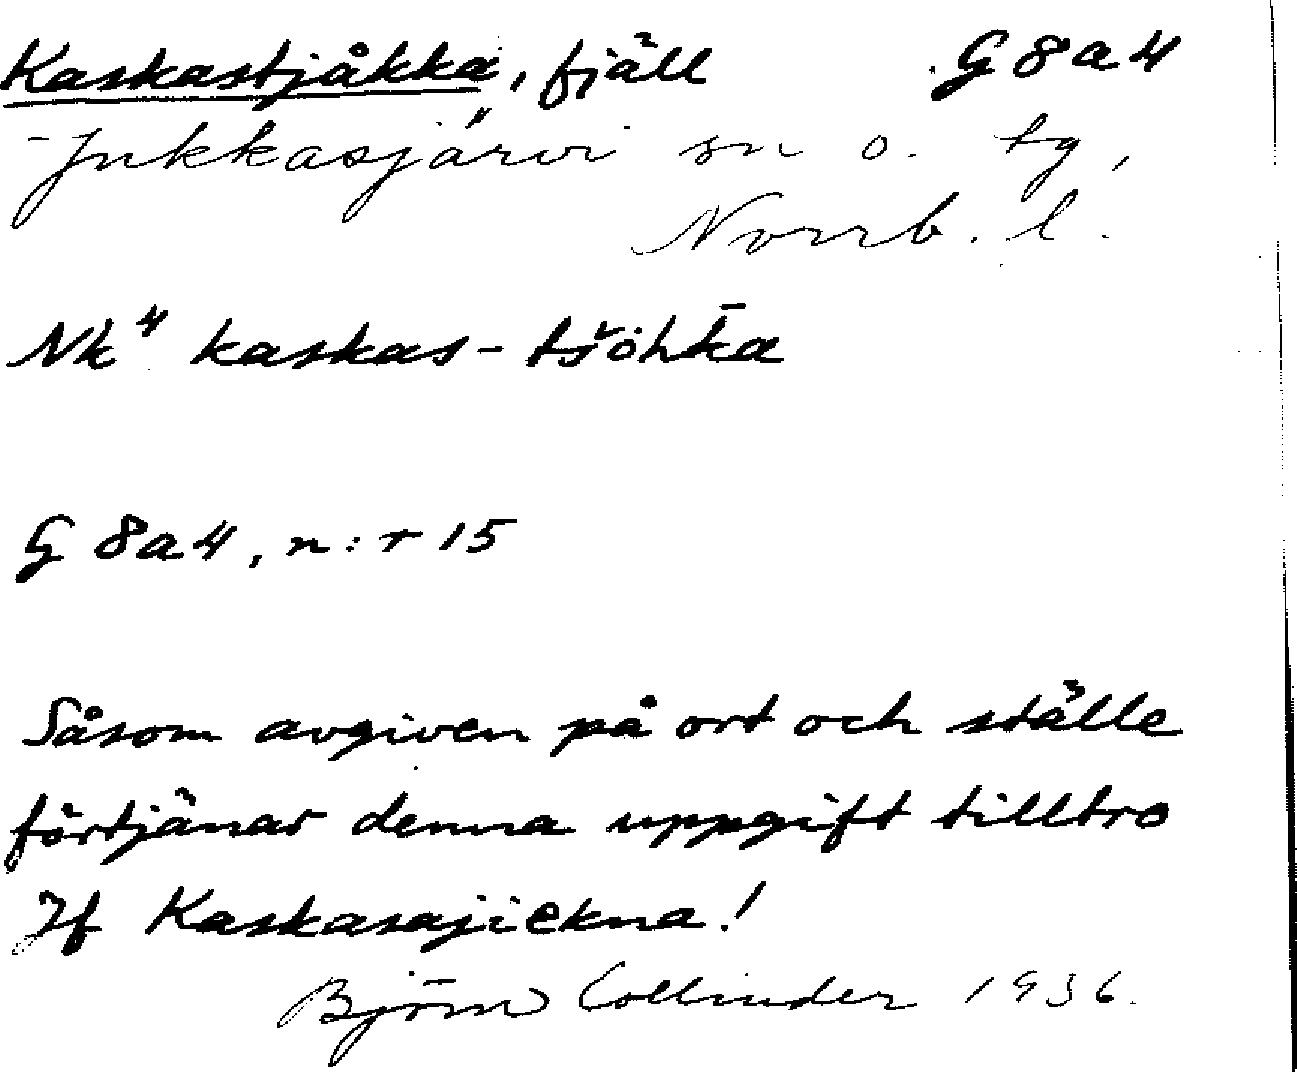 Kaskastjåkka, fjäll G8a4
Jukkasjärvi sn o. tg,
Norrb. l.
Nk⁴ kaskas-tšöhk̄a
G 8a4, n:r 15
Såsom avgiven på ort och ställe
förtjänar denna uppgift tilltro
Jf Kaskasajiekna!
Björn Collinder 1936.